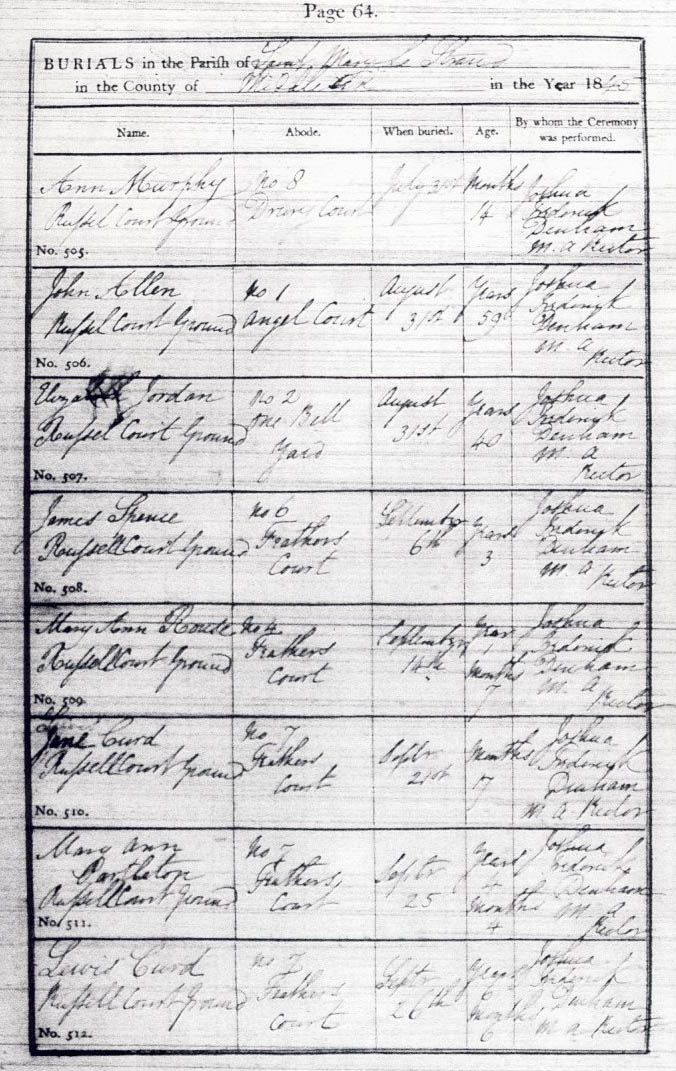 Page 64.
BURIALS in the Parish of Saint Mary Le Strand
in the County of Middlesex in the Year 1845
Name. Abode. When buried. Age. By whom the Ceremony was performed.
Ann Murphy
Russel Court Ground
No. 505.
No 8
Drury Court
July 31st
Months
14
Joshua
Frederick
Denham
M. A Rector
John Allen
Russel Court Ground
No. 506.
No 1
Angel Court
August
31st
Years
59
Joshua
Frederick
Denham
M. A
Rector
Elizabeth Jordan
Russel Court Ground
No. 507.
No 2
One Bell
Yard
August
31st
Years
40
Joshua
Frederick
Denham
M. A
Rector
James Spence
Russell Court Ground
No. 508.
No 6
Feathers
Court
September
6th
Years
3
Joshua
Frederick
Denham
M. A
Rector
Mary Ann Rouse
Russell Court Ground
No. 509.
No 4
Feathers
Court
September
14th
Year
1
Months
7
Joshua
Frederick
Denham
M. A
Rector
Jane Curd
Russell Court Ground
No. 510.
No 7
Feathers
Court
Septr
21st
Months
7
Joshua
Frederick
Denham
M A Rector
Mary Ann
Bartleton
Russell Court Ground
No. 511.
No 7
Feathers
Court
Septr
25
Years
4
Months
4
Joshua
Frederick
Denham
M. A
Rector
Lewis Curd
Russell Court Ground
No. 512.
No 7
Feathers
Court
Septr
26th
Years
Months
6
Joshua
Frederick
Denham
M. A Rector